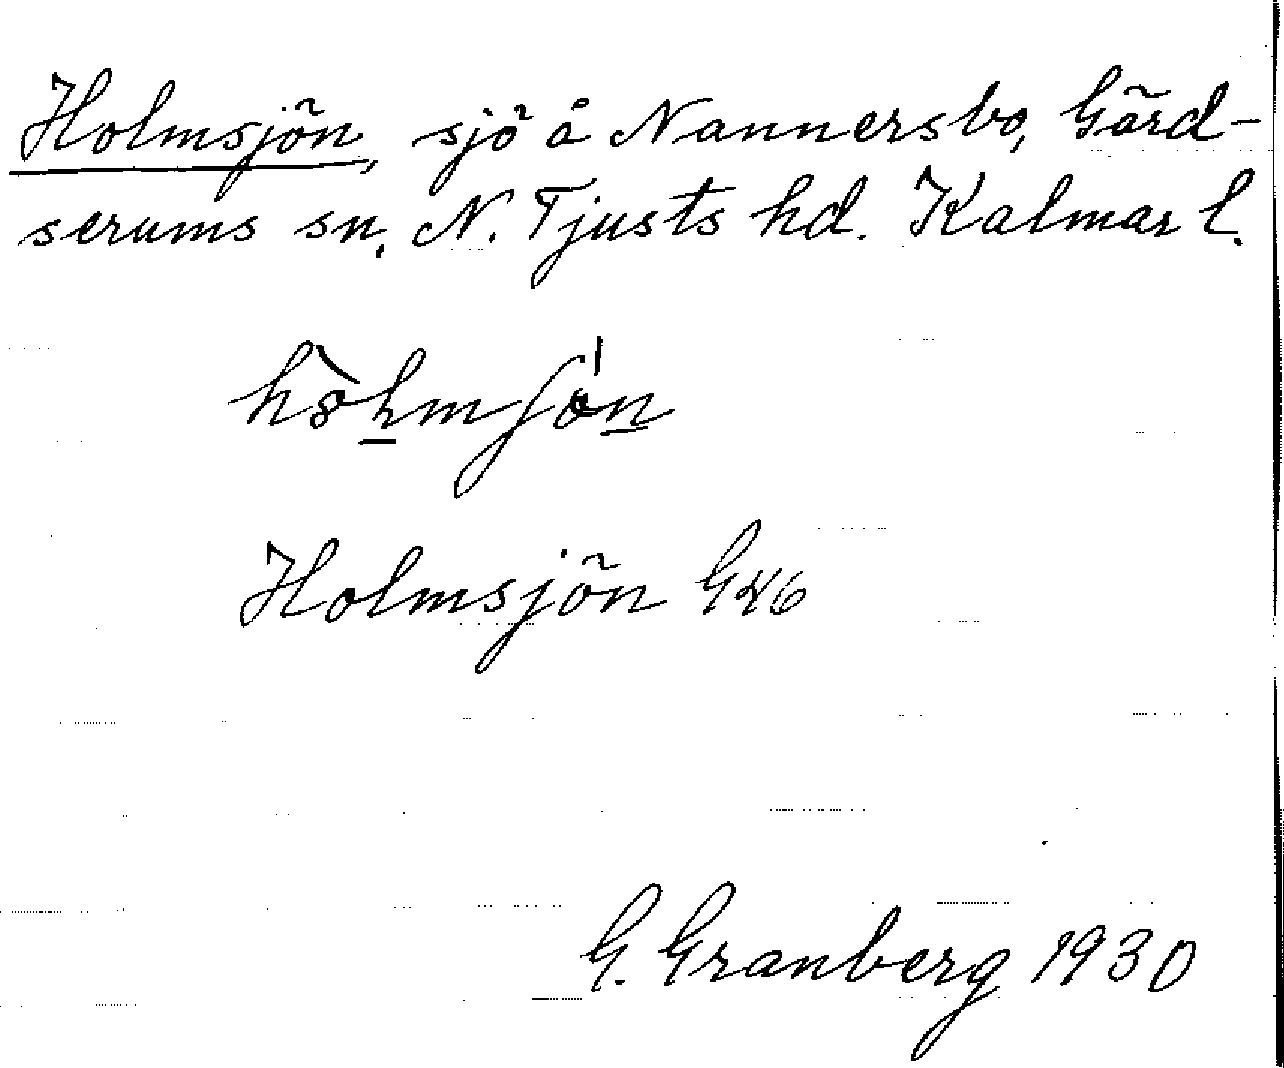 Holmsjön, sjö å Nannersbo, Gärd-
serums sn. N. Tjusts hd. Kalmar l.
Holmsjön
G. Granberg 1930